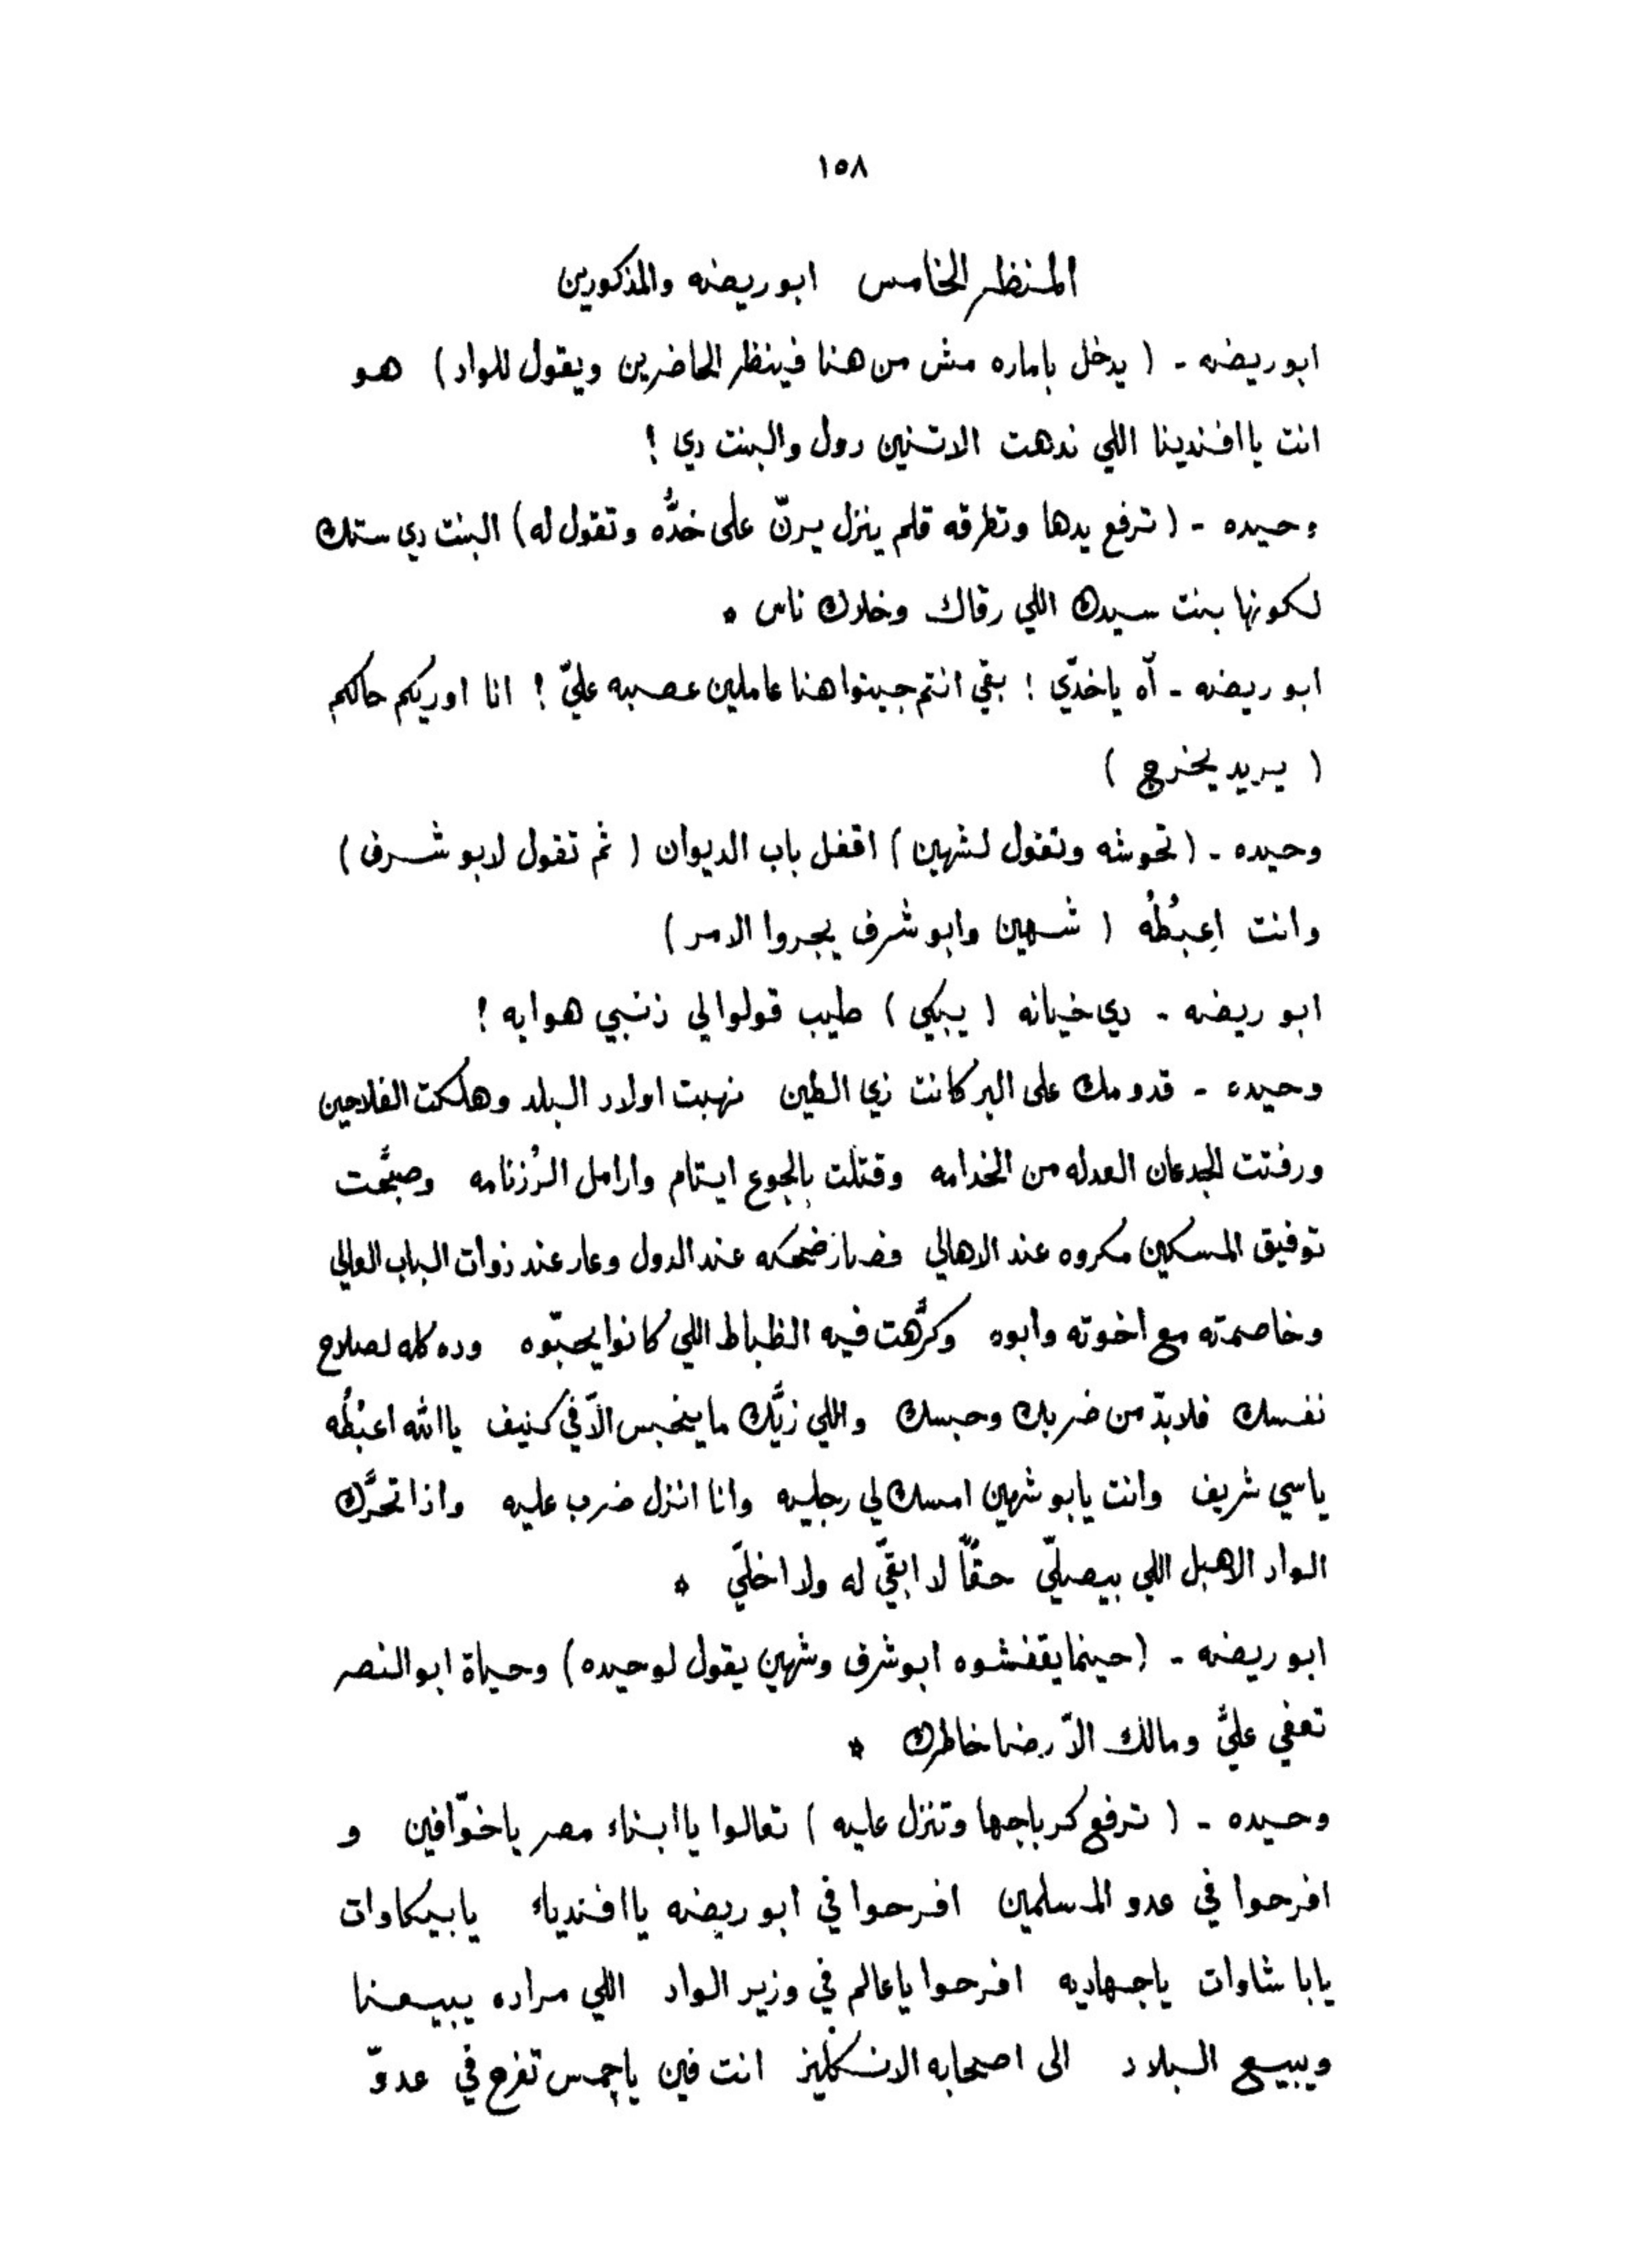 ١٥٨
المنظر الخامس ابو ريضه والمذكورين
ابو ريضه - ( يدخل باماره مش من هنا فينظر الحاضرين ويقول للواد ) هو
انت ياافندينا اللي ندهت الاتنين دول والبنت دي !
وحيده - ( ترفع يدها وتطرقه قلم ينزل يرنّ على خدُّه وتقول له ) البنت دي ستك
لكونها بنت سيدك اللي رقاك وخلاك ناس *
ابو ريضه - آه ياخدّي ! بقي انتم جيتوا هنا عاملين عصبه عليّ ! انا اوريكم حالكم
( يريد يخرج )
وحيده - ( تحوشه وتقول لشهين ) اقفل باب الديوان ( ثم تقول لابو شرف )
وانت اِعبُطُه ( شهين وابو شرف يجروا الامر )
ابو ريضه - دي خيانه ( يبكي ) طيب قولوا لي ذنبي هو ايه !
وحيده - قدومك على البر كانت زي الطين نهبت اولاد البلد وهلكت الفلاحين
ورفتت الجدعان العدله من الخدامه وقتلت بالجوع ايتام وارامل الرُزنامه وصبَّحت
توفيق المسكين مكروه عند الاهالي فصار ضحكه عند الدول وعار عند ذوات الباب العالي
وخاصمته مع اخوته وابوه وكرَّهت فيه الظباط اللي كانوا يحبّوه وده كله لصلاح
نفسك فلابدّ من ضربك وحبسك واللي زيَّك ما ينحبس الّا في كنيف ياالله اعبُطُه
ياسي شريف وانت يابو شهين امسك لي رجليه وانا انزل ضرب عليه واذا تحرَّك
الواد الاهبل اللي بيصلّي حقّاً لا ابقّي له ولا اخلّي *
ابو ريضه - ( حينما يقفشوه ابو شرف وشهين يقول لوحيده ) وحياة ابو النصر
تعفي عليَّ ومالك الّا رضا خاطرك *
وحيده - ( ترفع كرباجها وتنزل عليه ) تعالوا ياابناء مصر ياخوّافين و
افرحوا في عدو المسلمين افرحوا في ابو ريضه ياافندياء يابيكاوات
يابا شاوات ياجهاديه افرحوا ياعالم في وزير الواد اللي مراده يبيعنا
ويبيع البلاد الى اصحابه الانكليز انت فين ياجمس تفرح في عدوّ